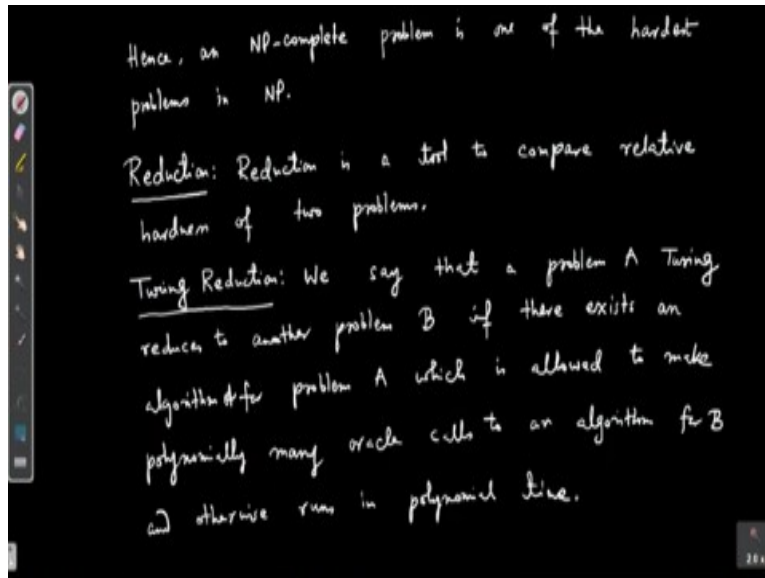 Hence, an NP-complete problem is one of the hardest
problems in NP.
Reduction: Reduction is a tool to compare relative
hardness of two problems.
Turing Reduction: We say that a problem A Turing
reduces to another problem B if there exists an
algorithm for problem A which is allowed to make
polynomially many oracle calls to an algorithm for B
and otherwise runs in polynomial time.
2.0 x